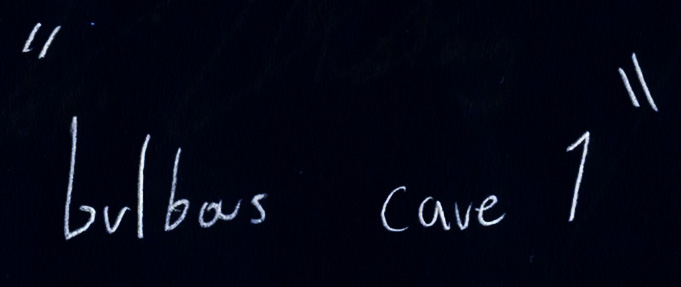 "bulbous cave 1"